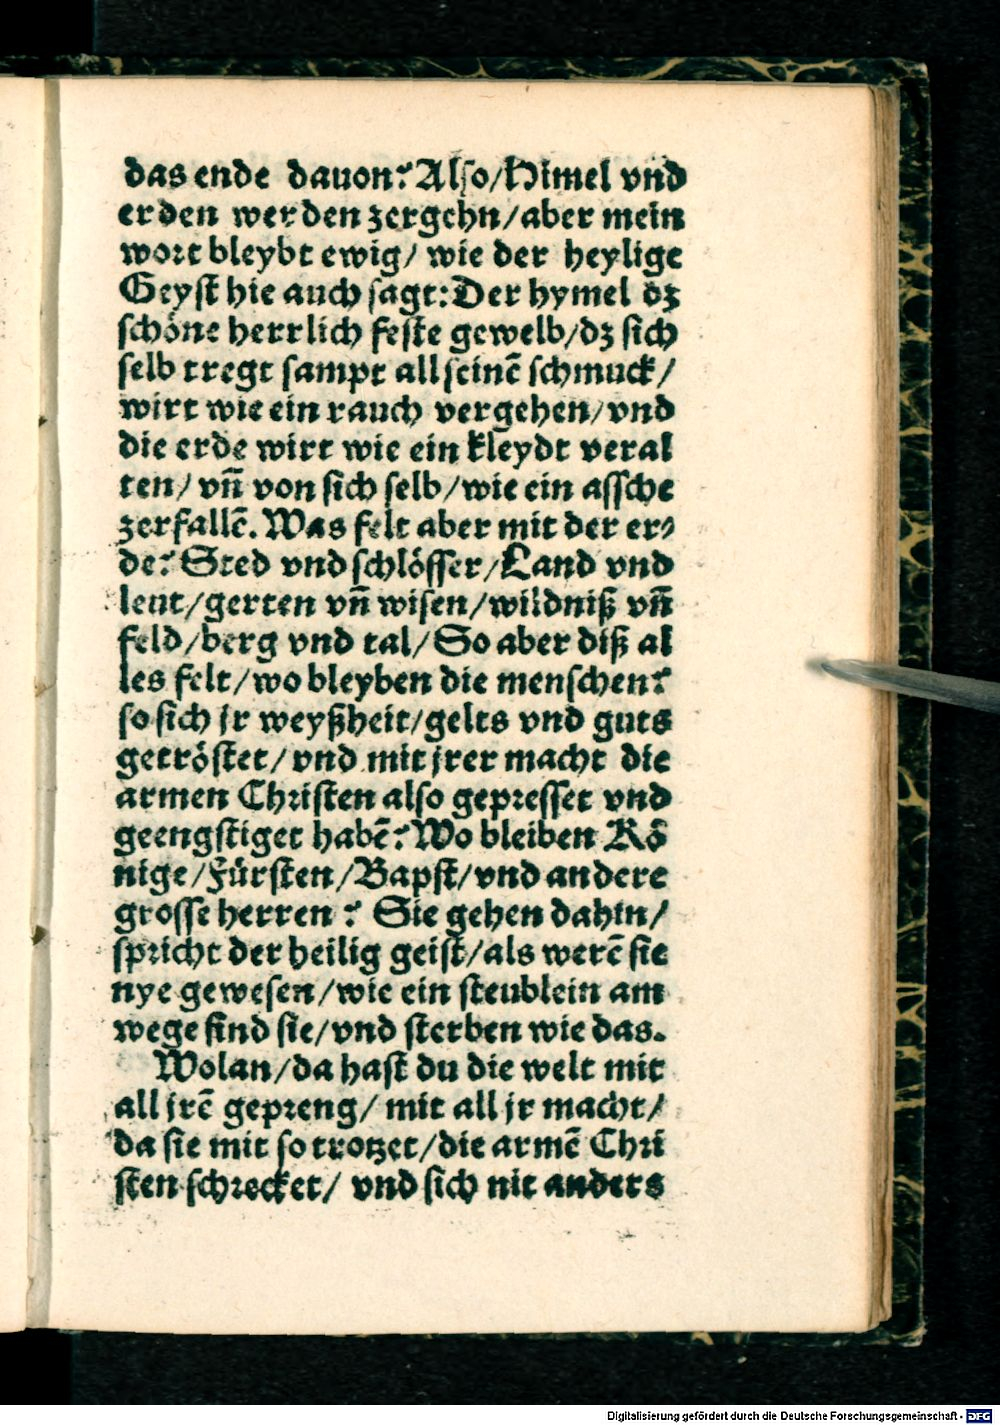 das ende dauon? Also/Himel vnd
erden werden zergehn/aber mein
wort bleybt ewig/ wie der heylige
Geyst hie auch sagt: Der hymel dz
schöne herrlich feste gewelb/dz sich
selb tregt sampt all seinē schmuck/
wirt wie ein rauch vergehen/vnd
die erde wirt wie ein kleydt veral
ten/ vn̄ von sich selb/wie ein assche
zerfallē. Was felt aber mit der er⸗
de? Sted vnd schlösser/Land vnd
leut/gerten vn̄ wisen/wildniß vn̄
feld/berg vnd tal/ So aber diß al
les felt/wo bleyben die menschen?
so sich jr weyßheit/gelts vnd guts
getröstet/vnd mit jrer macht die
armen Christen also gepresset vnd
geengstiget habē? Wo bleiben Kö
nige/Fürsten/Bapst/vnd andere
grosse herren? Sie gehen dahin/
spricht der heilig geist/als werē sie
nye gewesen/wie ein steublein am
wege sind sie/vnd sterben wie das.
Wolan/da hast du die welt mit
all jrē gepreng/ mit all jr macht/
da sie mit so trotzet/die armē Chri
sten schrecket/ vnd sich nit anders
Digitalisierung gefördert durch die Deutsche Forschungsgemeinschaft - DFG